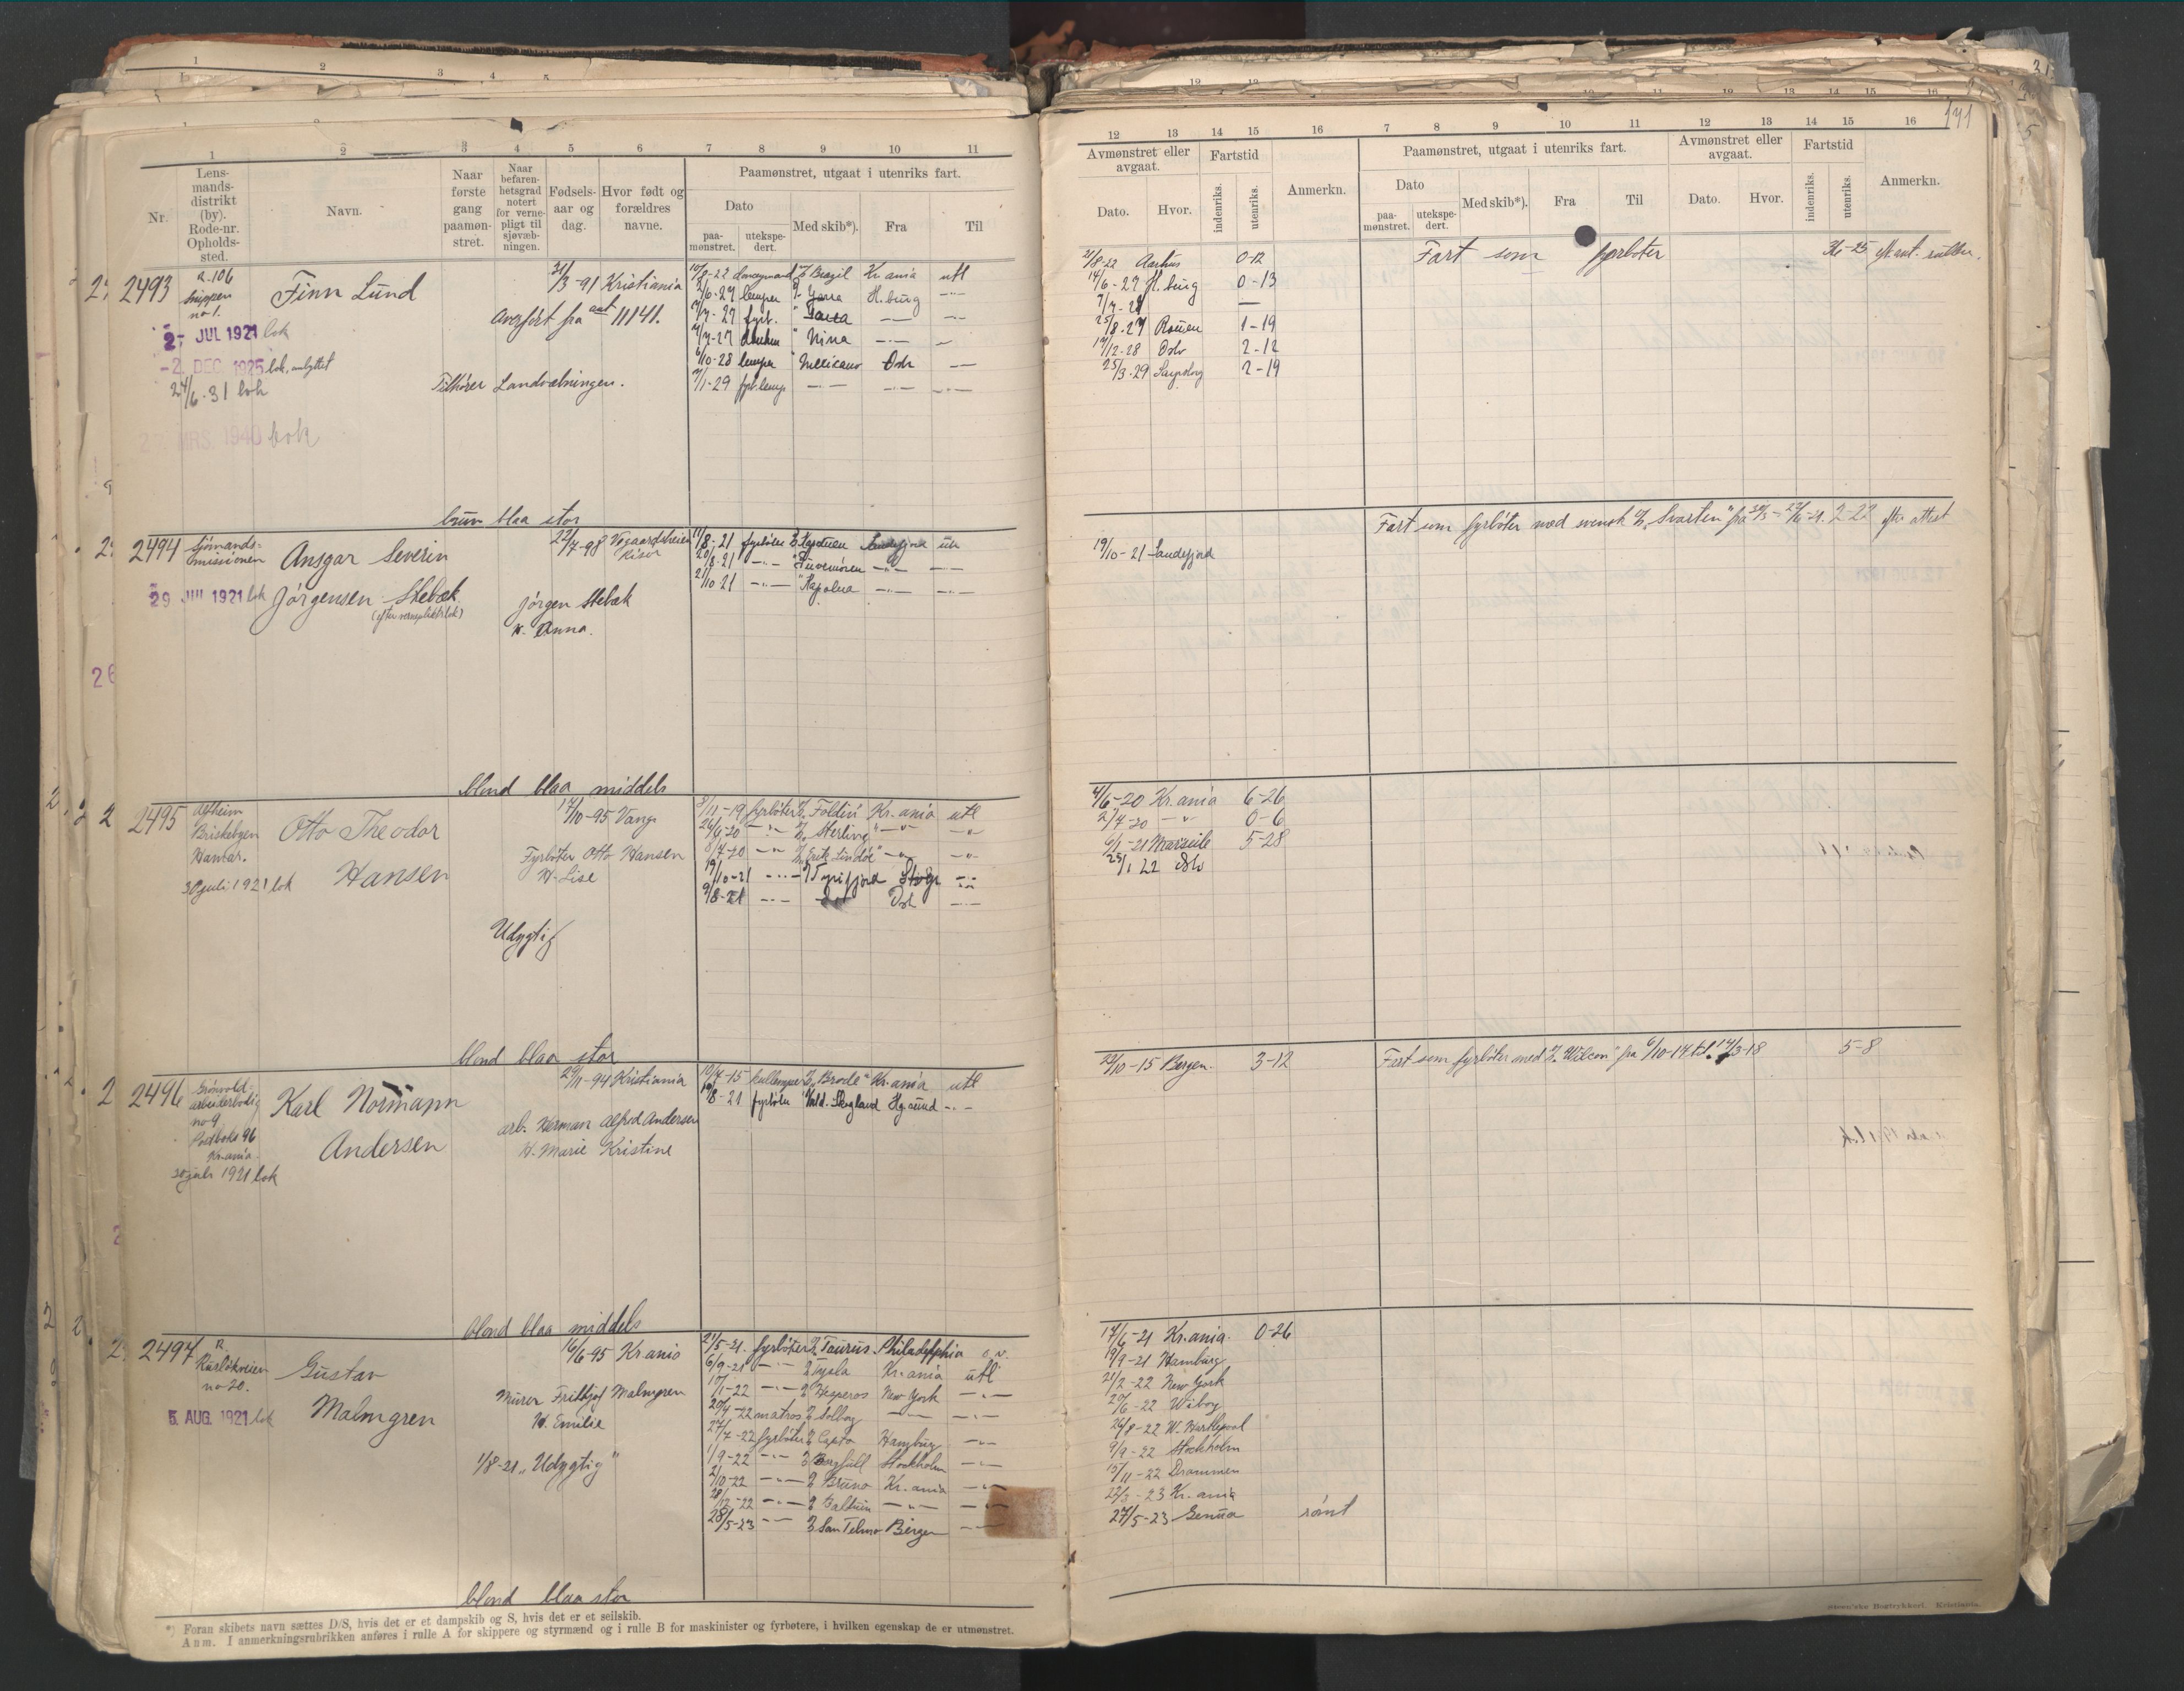 1 2 3 4 5 6 7 8 9 10 11
Nr.
Lens-
mands-
distrikt
(by).
Rode-nr.
Opholds-
sted.
Navn.
Naar
første
gang
paamøn-
stret.
Naar
befaren-
hetsgrad
notert
for verne-
pligt til
sjøvæb-
ningen.
Fødsels-
aar og
dag.
Hvor født og
forældres
navne.
Paamønstret, utgaat i utenriks fart.
Dato
paa-
mønstret.
utekspe-
dert.
Med skib*).
Fra
Til
2493
R. 106
no 1.
Finn Lund
21/3-91 Kristiania
Overført fra ant 11141.
2- JUL 1921 bok
-2. DEC. 1925 bok, ombyttet
24/6-31 bok
27. MRS. 1940 bok
Tilhører Landvæbningen.
Brazil Kr.ania utl
2/6-27 lemper Yarra H.burg
7/7-27 fyrb.
Nina
6/10-28 lemper Mexicano Oslo
brun blaa stor
2494
Sjømands-
missionen
Ansgar Severin
Jørgensen Stebæk
29 JUL 1921 bok
22/7-98
Risør
Jørgen Stebæk
H. Anna.
11/8-21 fyrbøter Sandefjord utl
20/8-21
21/10-21
blond blaa middels
2495
Alfheim
Briskebyen
Hamar.
30 juli 1921 bok
Otto Theodor
Hansen
17/10-95 Vang
Fyrbøter Otto Hansen
H. Lise
Udygtig
3/11-19 fyrbøter Foldin Kr.ania utl
26/6-20 Sterling
8/7-20 Erik Lindøe
19/10-21 Tyrifjord
Oslo
blond blaa stor
2496
Grønvold
arbeiderbolig
no 9
Postboks 96
Kr.ania
30 juli 1921 bok
Karl Normann
Andersen
29/11-94 Kristiania
arb. Herman Alfred Andersen
H. Marie Kristine
10/7-15 kullemper Brode Kr.ania utl
19/8-21 fyrbøter Vald. Skogland Hg.sund
blond blaa middels
2497
no 20.
5. AUG. 1921 bok
Gustav
Malmgren
16/6-95 Kr.ania
Murer Frithjof Malmgren
H. Emilie
1/8-21 „Udygtig"
21/5-21. fyrbøter Taurus Philadelphia
6/9-21 Kr.ania utl
19/1-22 Hesperos New York
20/4-22 matros Solborg
27/7-22 fyrbøter Capto Hamburg
1/9-22 Stockholm
2/10-22 Bruno Kr.ania
28/12-22
28/5-23 San Telmo Bergen
blond blaa stor
*) Foran skibets navn sættes D/S, hvis det er et dampskib og S, hvis det er et seilskib.
Anm. I anmerkningsrubrikken anføres i rulle A for skippere og styrmænd og i rulle B for maskinister og fyrbøtere, i hvilken egenskap de er utmønstret.
141
12 13 14 15 16 7 8 9 10 11 12 13 14 15 16
Avmønstret eller
avgaat.
Dato.
Hvor.
Fartstid
indenriks.
utenriks.
Anmerkn.
Paamønstret, utgaat i utenriks fart.
Dato
paa-
mønstret.
utekspe-
dert.
Med skib*).
Fra
Til
Avmønstret eller
avgaat.
Dato.
Hvor.
Fartstid
indenriks.
utenriks.
Anmerkn.
21/8-22 Aarhus 0-12
Fart som fyrbøter 36-25 efter ant. rullen.
14/6-27 H.burg 0-13
25/8-27 Rouen 1-19
17/12-28 Oslo 2-12
25/3-29 Sarpsborg 2-19
Fart som fyrbøter med svensk „Svarten" fra 2-22 efter attest
19/10-21 Sandefjord
4/6-20 Kr.ania 6-26
2/7-20 0-6
6/1-21 Marseile 5-28
25/1 22 Oslo
23/10-15 Bergen. 3-12
Fart som fyrbøter med „Wilson" fra 6/10-17 til 14/3-18 5-8
17/6-21 Kr.ania. 0-26
19/9-21 Hamburg
21/2-22 New York
29/6-22 Wiborg
26/8-22 W. Hartlepool
9/9-22 Stockholm
15/11-22 Drammen
22/3-23 Kr.ania
27/5-23 Genua rømt
Steen'ske Bogtrykkeri. Kristiania.